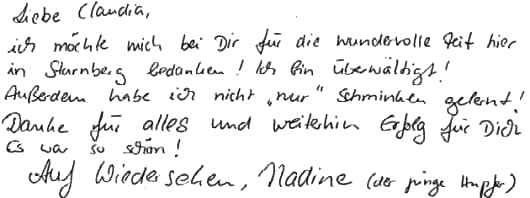 Liebe Claudia,
ich möchte mich bei Dir für die wundervolle Zeit hier
in Starnberg bedanken! Ich bin überwältigt!
Außerdem habe ich nicht „nur“ schminken gelernt!
Danke für alles und weiterhin Erfolg für Dich
Es war so schön!
Auf Wiedersehen, Nadine (der junge Hupfer)